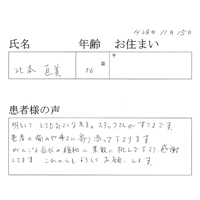 H28年 11月 15日
氏名 年齢 お住まい
北本 直美 56歳 〒
患者様の声
明るくて とてもおだやかな先生。スタッフさんがすてきです。
患者の痛みや辛さに寄り添って下さります
がんこな症状の緩和に果敢に挑んで下さり感謝
してます。これからもよろしくお願いします。